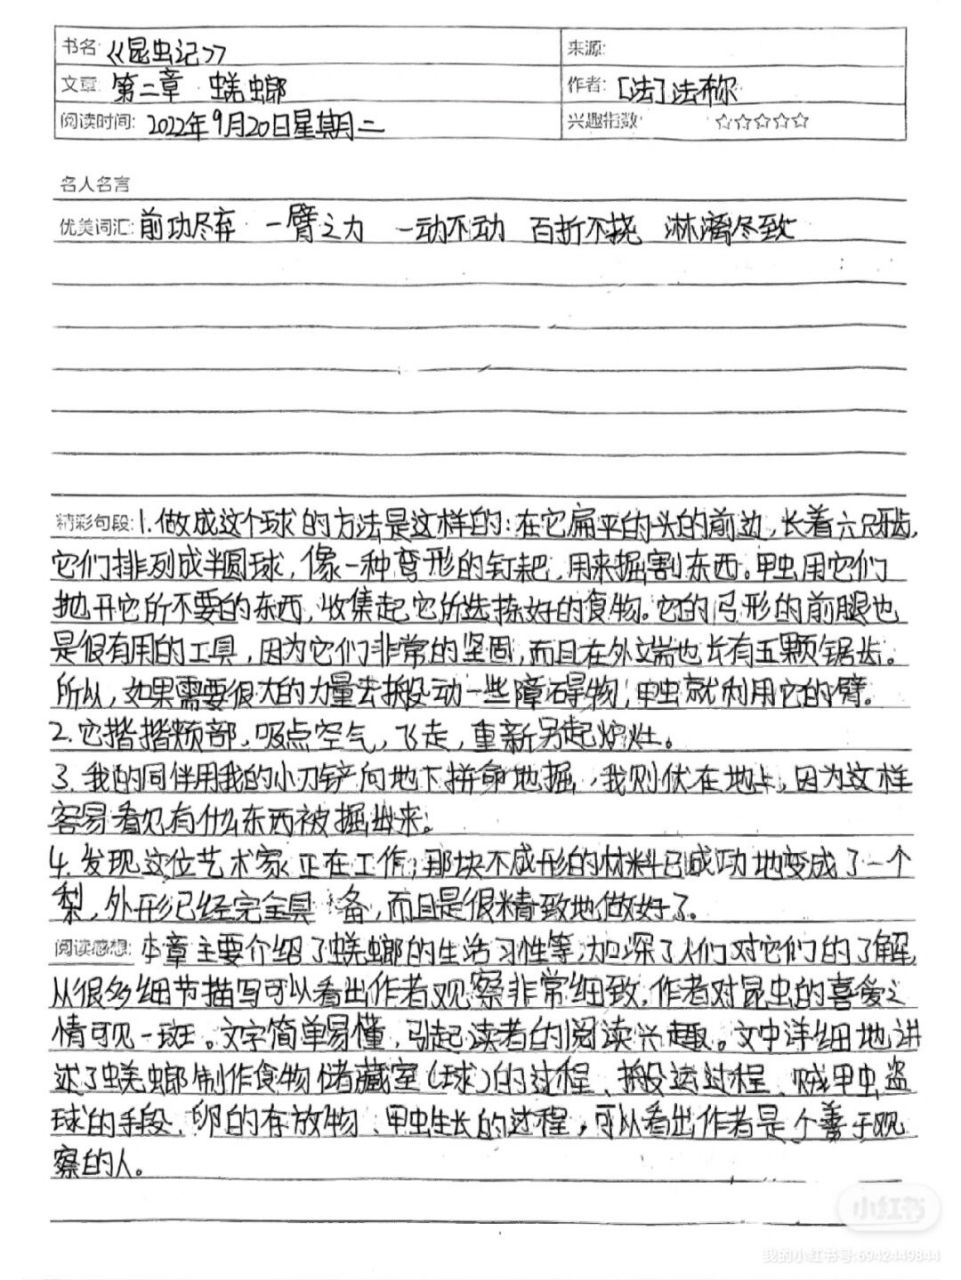 书名: 《昆虫记》 来源:
文章: 第二章 蜣螂 作者: [法]法布尔
阅读时间: 2022年9月20日星期二 兴趣指数 ☆☆☆☆☆
名人名言
优美词汇: 前功尽弃 一臂之力 一动不动 百折不挠 淋漓尽致
精彩句段: 1.做成这个球的方法是这样的:在它扁平的头的前边,长着六只牙齿,
它们排列成半圆球,像一种弯形的钉耙,用来掘割东西。甲虫用它们
抛开它所不要的东西,收集起它所选拣好的食物。它的弓形的前腿也
是很有用的工具,因为它们非常的坚固,而且在外端也长有五颗锯齿。
所以,如果需要很大的力量去搬动一些障碍物,甲虫就利用它的臂。
2.它揩揩颊部,吸点空气,飞走,重新另起炉灶。
3.我的同伴用我的小刀铲向地下拼命地掘,我则伏在地上,因为这样
容易看见有什么东西被掘出来。
4.发现这位艺术家正在工作;那块不成形的材料已成功地变成了一个
梨,外形已经完全具备,而且是很精致地做好了。
阅读感想: 本章主要介绍了蜣螂的生活习性等,加深了人们对它们的了解,
从很多细节描写可以看出作者观察非常细致,作者对昆虫的喜爱之
情可见一斑。文字简单易懂,引起读者的阅读兴趣。文中详细地讲
述了蜣螂制作食物储藏室(球)的过程、搬运过程、贼甲虫盗
球的手段、卵的存放物、甲虫生长的过程,可以看出作者是个善于观
察的人。
小红书
我的小红书号:6942449844